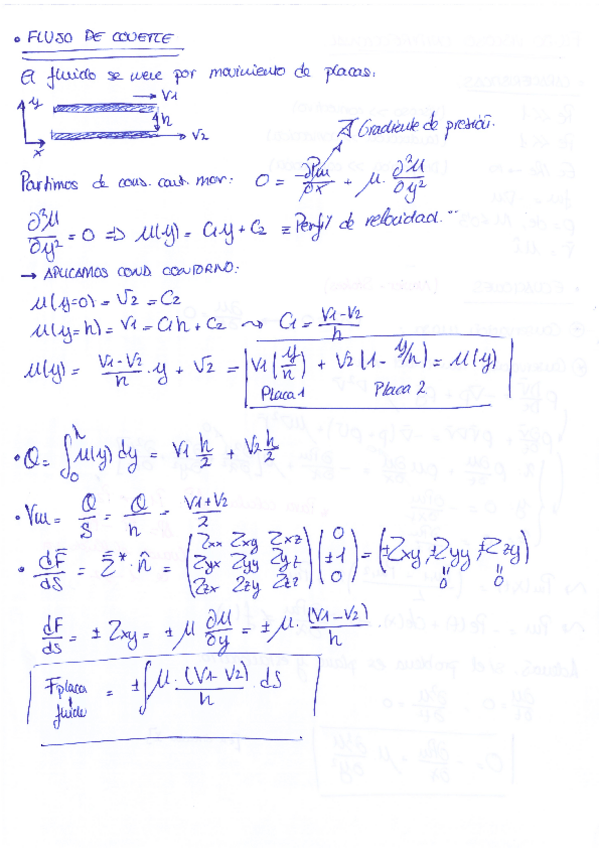 • FLUJO DE COUETTE
El fluido se mueve por movimiento de placas:
y → V1
h
x → V2
Gradiente de presión.
Partimos de cons. cant. mov: 0 = -∂Pm/∂x + μ · ∂²u/∂y²
∂²u/∂y² = 0 ⇒ u(y) = C1y + C2 ≡ Perfil de velocidad...
→ APLICAMOS COND CONTORNO:
u(y=0) = V2 = C2
u(y=h) = V1 = C1h + C2 ⤳ C1 = (V1-V2)/h
u(y) = (V1-V2)/h · y + V2 = V1(y/h) + V2(1 - y/h) = u(y)
Placa 1 Placa 2
• Q = ∫₀ʰ u(y) dy = V1 h/2 + V2 h/2
• Vm = Q/S = Q/h = (V1+V2)/2
• dF̄/dS = τ̄* · n̂ = (τxx τxy τxz; τyx τyy τyz; τzx τzy τzz) (0; ±1; 0) = (±τxy, ±τyy, ±τzy)
0 0
dF/dS = ± τxy = ± μ ∂u/∂y = ± μ · (V1-V2)/h ·
F placa fluido = ± ∫ μ · (V1-V2)/h · dS